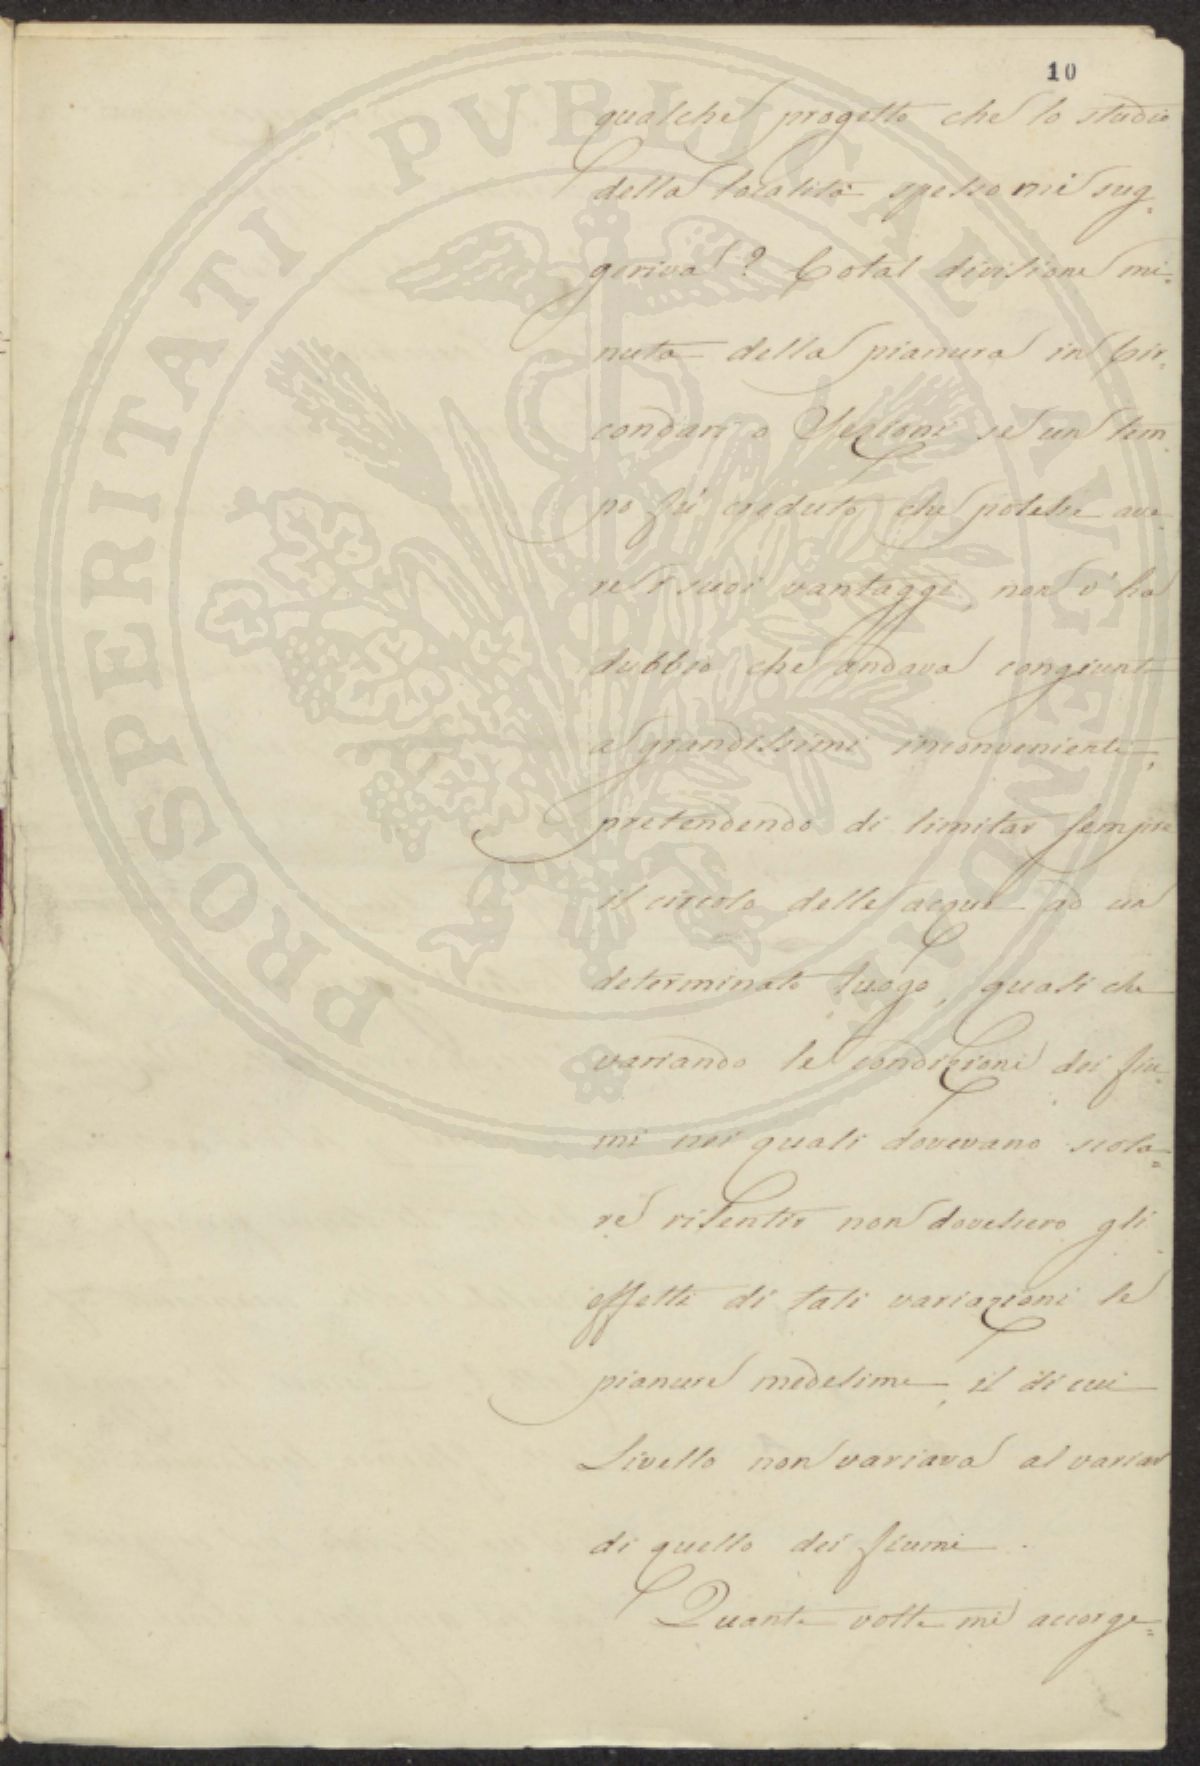 10
qualche progetto che lo studio
della località spesso mi sug=
geriva? Cotal divisione mi=
nuta della pianura in Cir=
condari o Sezioni se un tem
po fù creduto che potesse ave=
re i suoi vantaggi, non v'ha
dubbio che andava congiunta
a grandissimi inconvenienti,
pretendendo di limitar sempre
il circolo delle acque ad un
determinato luogo, quasi che
variando le condizioni dei fiu=
mi nei quali dovevano scola=
re risentir non dovessero gli
effetti di tali variazioni le
pianure medesime, il di cui
Livello non variava al variar
di quello dei fiumi.
Quante volte mi accorge=
PROSPERITATI PVBLICAE AVGENDAE